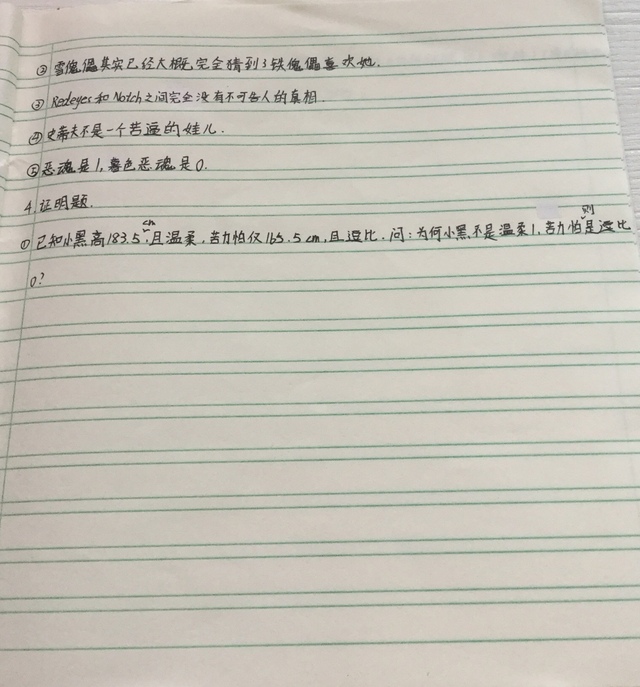 ②雪傀儡其实已经大概完全猜到了铁傀儡喜欢她.
③Redeyes和Notch之间完全没有不可告人的真相.
④史蒂夫不是一个苦逼的娃儿.
⑤恶魂是1,暮色恶魂是0.
4.证明题.
①已知小黑高183.5cm,且温柔,苦力怕仅165.5cm,且逗比.问:为何小黑不是温柔1,苦力怕则是逗比
0?